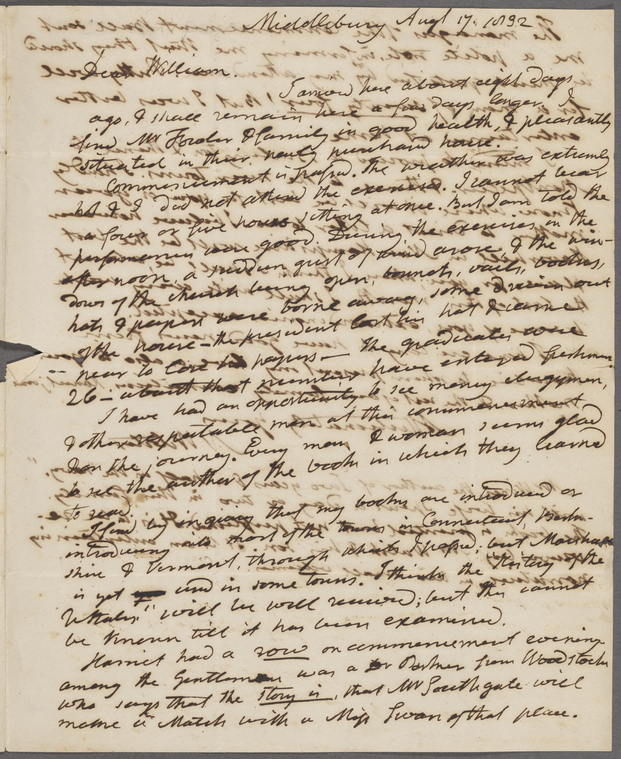 Middlebury Augt 17. 1832
Dear William.
I arrived here about eight days
ago, & shall remain here a few days longer. I
find Mr Fowler & family in good health, & pleasantly
situated in their newly purchased house.
Commencement is passed. The weather was extremely
hot & I did not attend the exercises. I cannot bear
a four or five hours sitting at once. But I am told the
performances were good. During the exercises in the
afternoon, a sudden gust of wind arose & the win-
dows of the church being open, bonnets, vails, books,
hats & papers were borne away, some driven out
of the house the president lost his hat & came
near to lose his papers— The graduates were
26 – about that number have entered freshmen.
I have had an opportunity to see many clergymen,
& other respectable men at this commencement
& on the journey. Every man & woman seems glad
to see the author of the books in which they learned
to read.
I find by inquiry that my books are introduced or
introducing into most of the towns in Connecticut,
shire & Vermont, through which I passed; but Marshall
is yet used in some towns. I think the History of the
U States will be well received; but this cannot
be known till it has been examined.
Harriet had a row on commencement evening
among the Gentlemen was a Dr Palmer from Woodstock
who says that the story is, that Mr Southgate will
make a Match with a Miss Swan of that place.